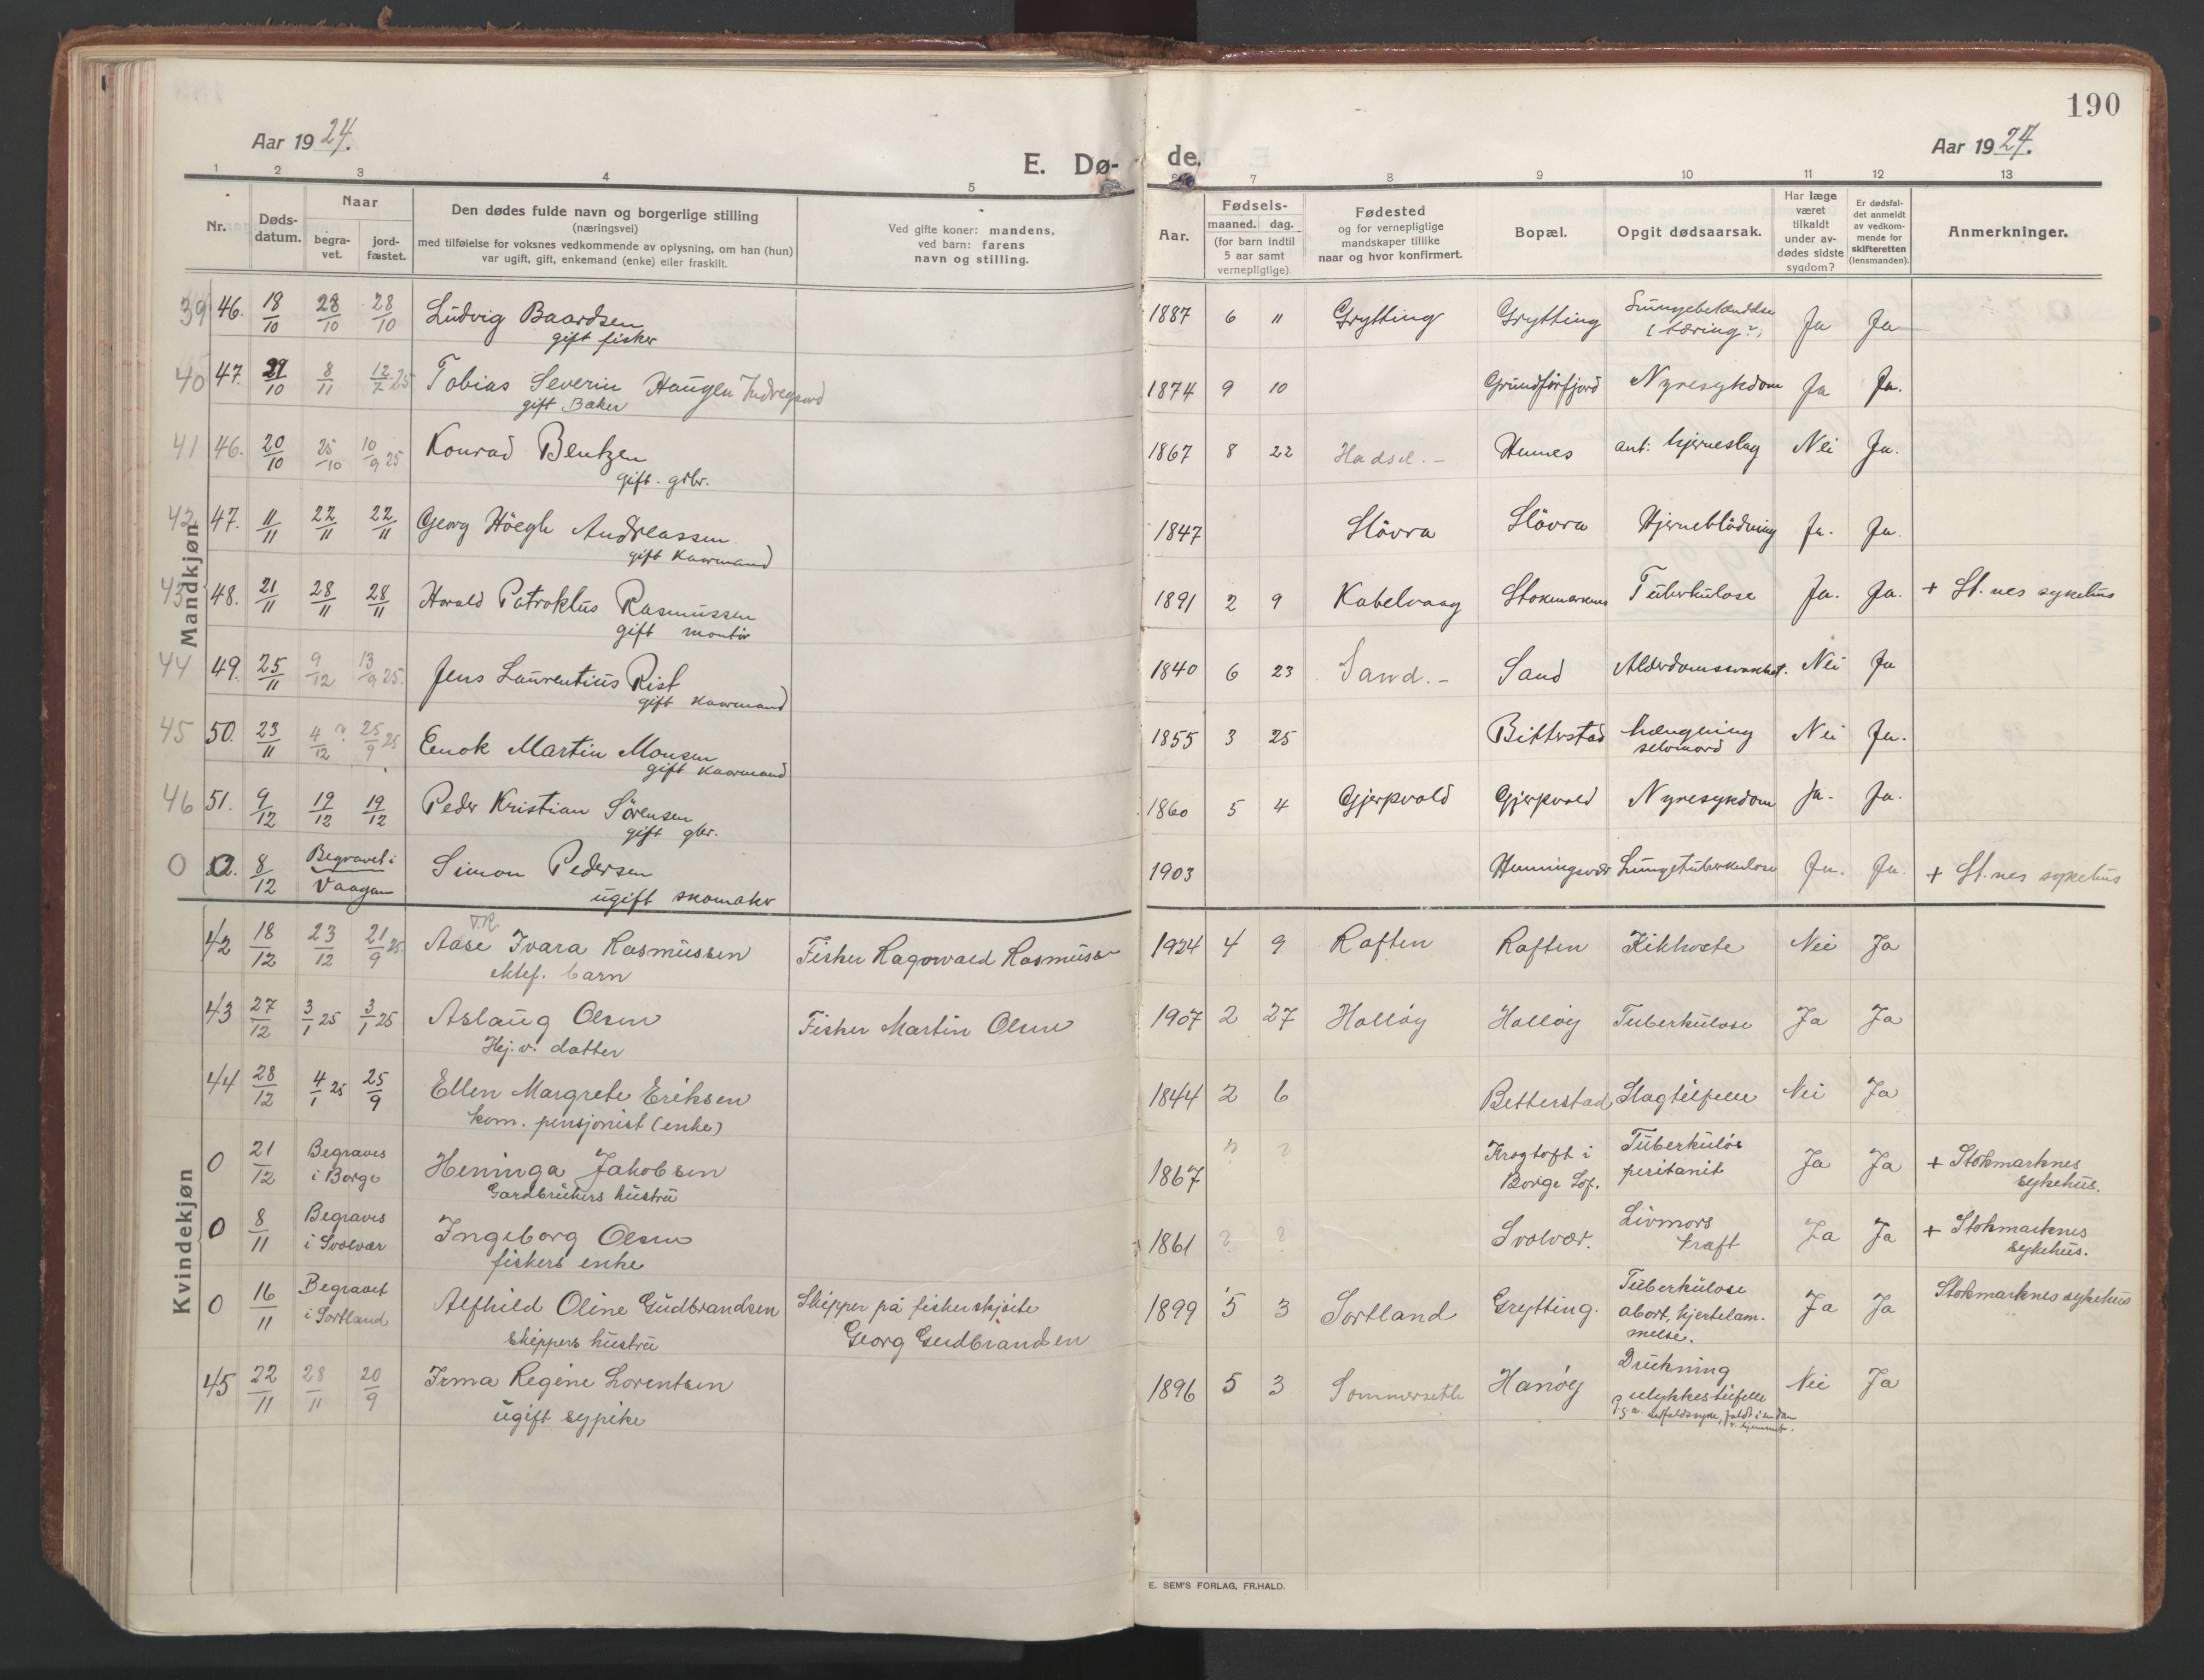 190
Aar 1924.
E. Dø-
de.
Aar 1924.
1 2 3 4 5
7 8 9 10 11 12 13
Nr.
Døds-
datum.
Naar
begra-
vet.
jord-
fæstet.
Den dødes fulde navn og borgerlige stilling
(næringsvei)
med tilføielse for voksnes vedkommende av oplysning, om han (hun)
var ugift, gift, enkemand (enke) eller fraskilt.
Ved gifte koner: mandens,
ved barn: farens
navn og stilling.
Aar.
Fødsels-
maaned. dag.
(for barn indtil
5 aar samt
vernepligtige).
Fødested
og for vernepligtige
mandskaper tillike
naar og hvor konfirmert.
Bopæl.
Opgit dødsaarsak.
Har læge
været
tilkaldt
under av-
dødes sidste
sygdom?
Er dødsfal-
det anmeldt
av vedkom-
mende for
skifteretten
(lensmanden).
Anmerkninger.
Mandkjøn
39 46. 18/10 28/10 28/10 Ludvig Baardsen 1887 6 11 Grytting Grytting Ja Ja
gift fisker (tæring?)
40 47. 29/10 8/11 12/7 25 Tobias Severin Haugen Indregaard 1874 9 10 Grundførfjord Nyresykdom Ja Ja.
gift Baker
41 46. 20/10 25/10 10/9 25 Konrad Bentzen 1867 8 22 Hadsel. - Hennes ant: hjerneslag Nei Ja.
gift. gbr.
42 47. 11/11 22/11 22/11 Georg Höegh Andreassen 1847 Slövra Slövra Hjerneblödning Ja. Ja.
gift Kaarmand
43 48. 21/11 28/11 28/11 Harald Patroklus Rasmussen 1891 2 9 Kabelvaag Stokmarknes Tuberkulose Ja. Ja. + St.nes sykehus
gift montör
44 49. 25/11 9/12 13/9 25. Jens Laurentius Rist 1840 6 23 Sand. - Sand Alderdomssvakhet. Nei Ja
gift Kaarmand
45 50. 23/11 4/12 ? 25/9 25 Enok Martin Monsen 1855 3 25 Bitterstad hængning Nei Ja.
gift Kaarmand selvmord
46 51. 9/12 19/12 19/12 Peder Kristian Sörensen 1860 5 4 Gjerpvold Gjerpvold Nyresykdom Ja. Ja.
gift gbr.
0 0. 8/12 Begravet i Simon Pedersen 1903 Henningsvær Lungetuberkulose Ja. Ja. + St.nes sykehus
Vaagan ugift skomaker
Kvindekjøn
T.R.
42 18/12 23/12 21/9 25 Aase Ivara Rasmussen Fisker Ragnvald Rasmussen 1924 4 9 Raften Raften Kikhoste Nei Ja
ektef. barn
43 27/12 3/1 25 3/1 25 Aslaug Olsen Fisker Martin Olsen 1907 2 27 Halløy Halløy Tuberkulose Ja Ja
Hj.v. datter
44 28/12 4/1 25 25/9 Ellen Margrete Eriksen 1844 2 6 Betterstad Slagtilfelle Nei Ja
kom. pensjonist (enke)
0 21/12 Begraves Heninga Jakobsen 1867 ? ? Krogtoft i Tuberkuløs Ja Ja + Stokmarknes
i Borge Gardbrukers hustru Borge Lof. peritanit sykehus.
0 8/11 Begraves Ingeborg Olsen 1861 ? ? Svolvær. Livmors Ja Ja + Stokmarknes
i Svolvær fiskers enke kraft sykehus.
0 16/11 Begravet Alfhild Oline Gudbrandsen Skipper på fiskerskjøite 1899 5 3 Sortland Grytting. Tuberkulose Ja Ja Stokmarknes sykehus
i Sortland skippers hustru Georg Gudbrandsen abort, hjertelam-
melse.
45 22/11 28/11 20/9 Irma Regine Lorentsen 1896 5 3 Sommersetle Hanøy Drukning Nei Ja
ugift sypike ulykkestilfelle
P.g.a. nedfaldssyke, faldt i
v. hjemmet.
E. SEM'S FORLAG, FR.HALD.